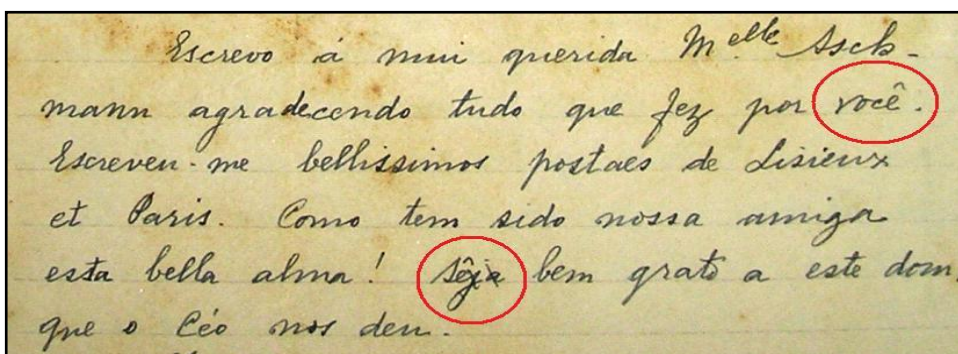 Escrevo á mui querida Melle Asch-
mann agradecendo tudo que fez por você.
Escreveu-me bellissimos postaes de Lisieux
et Paris. Como tem sido nossa amiga
esta bella alma! Sêja bem grato a este dom,
que o Céo nos deu.